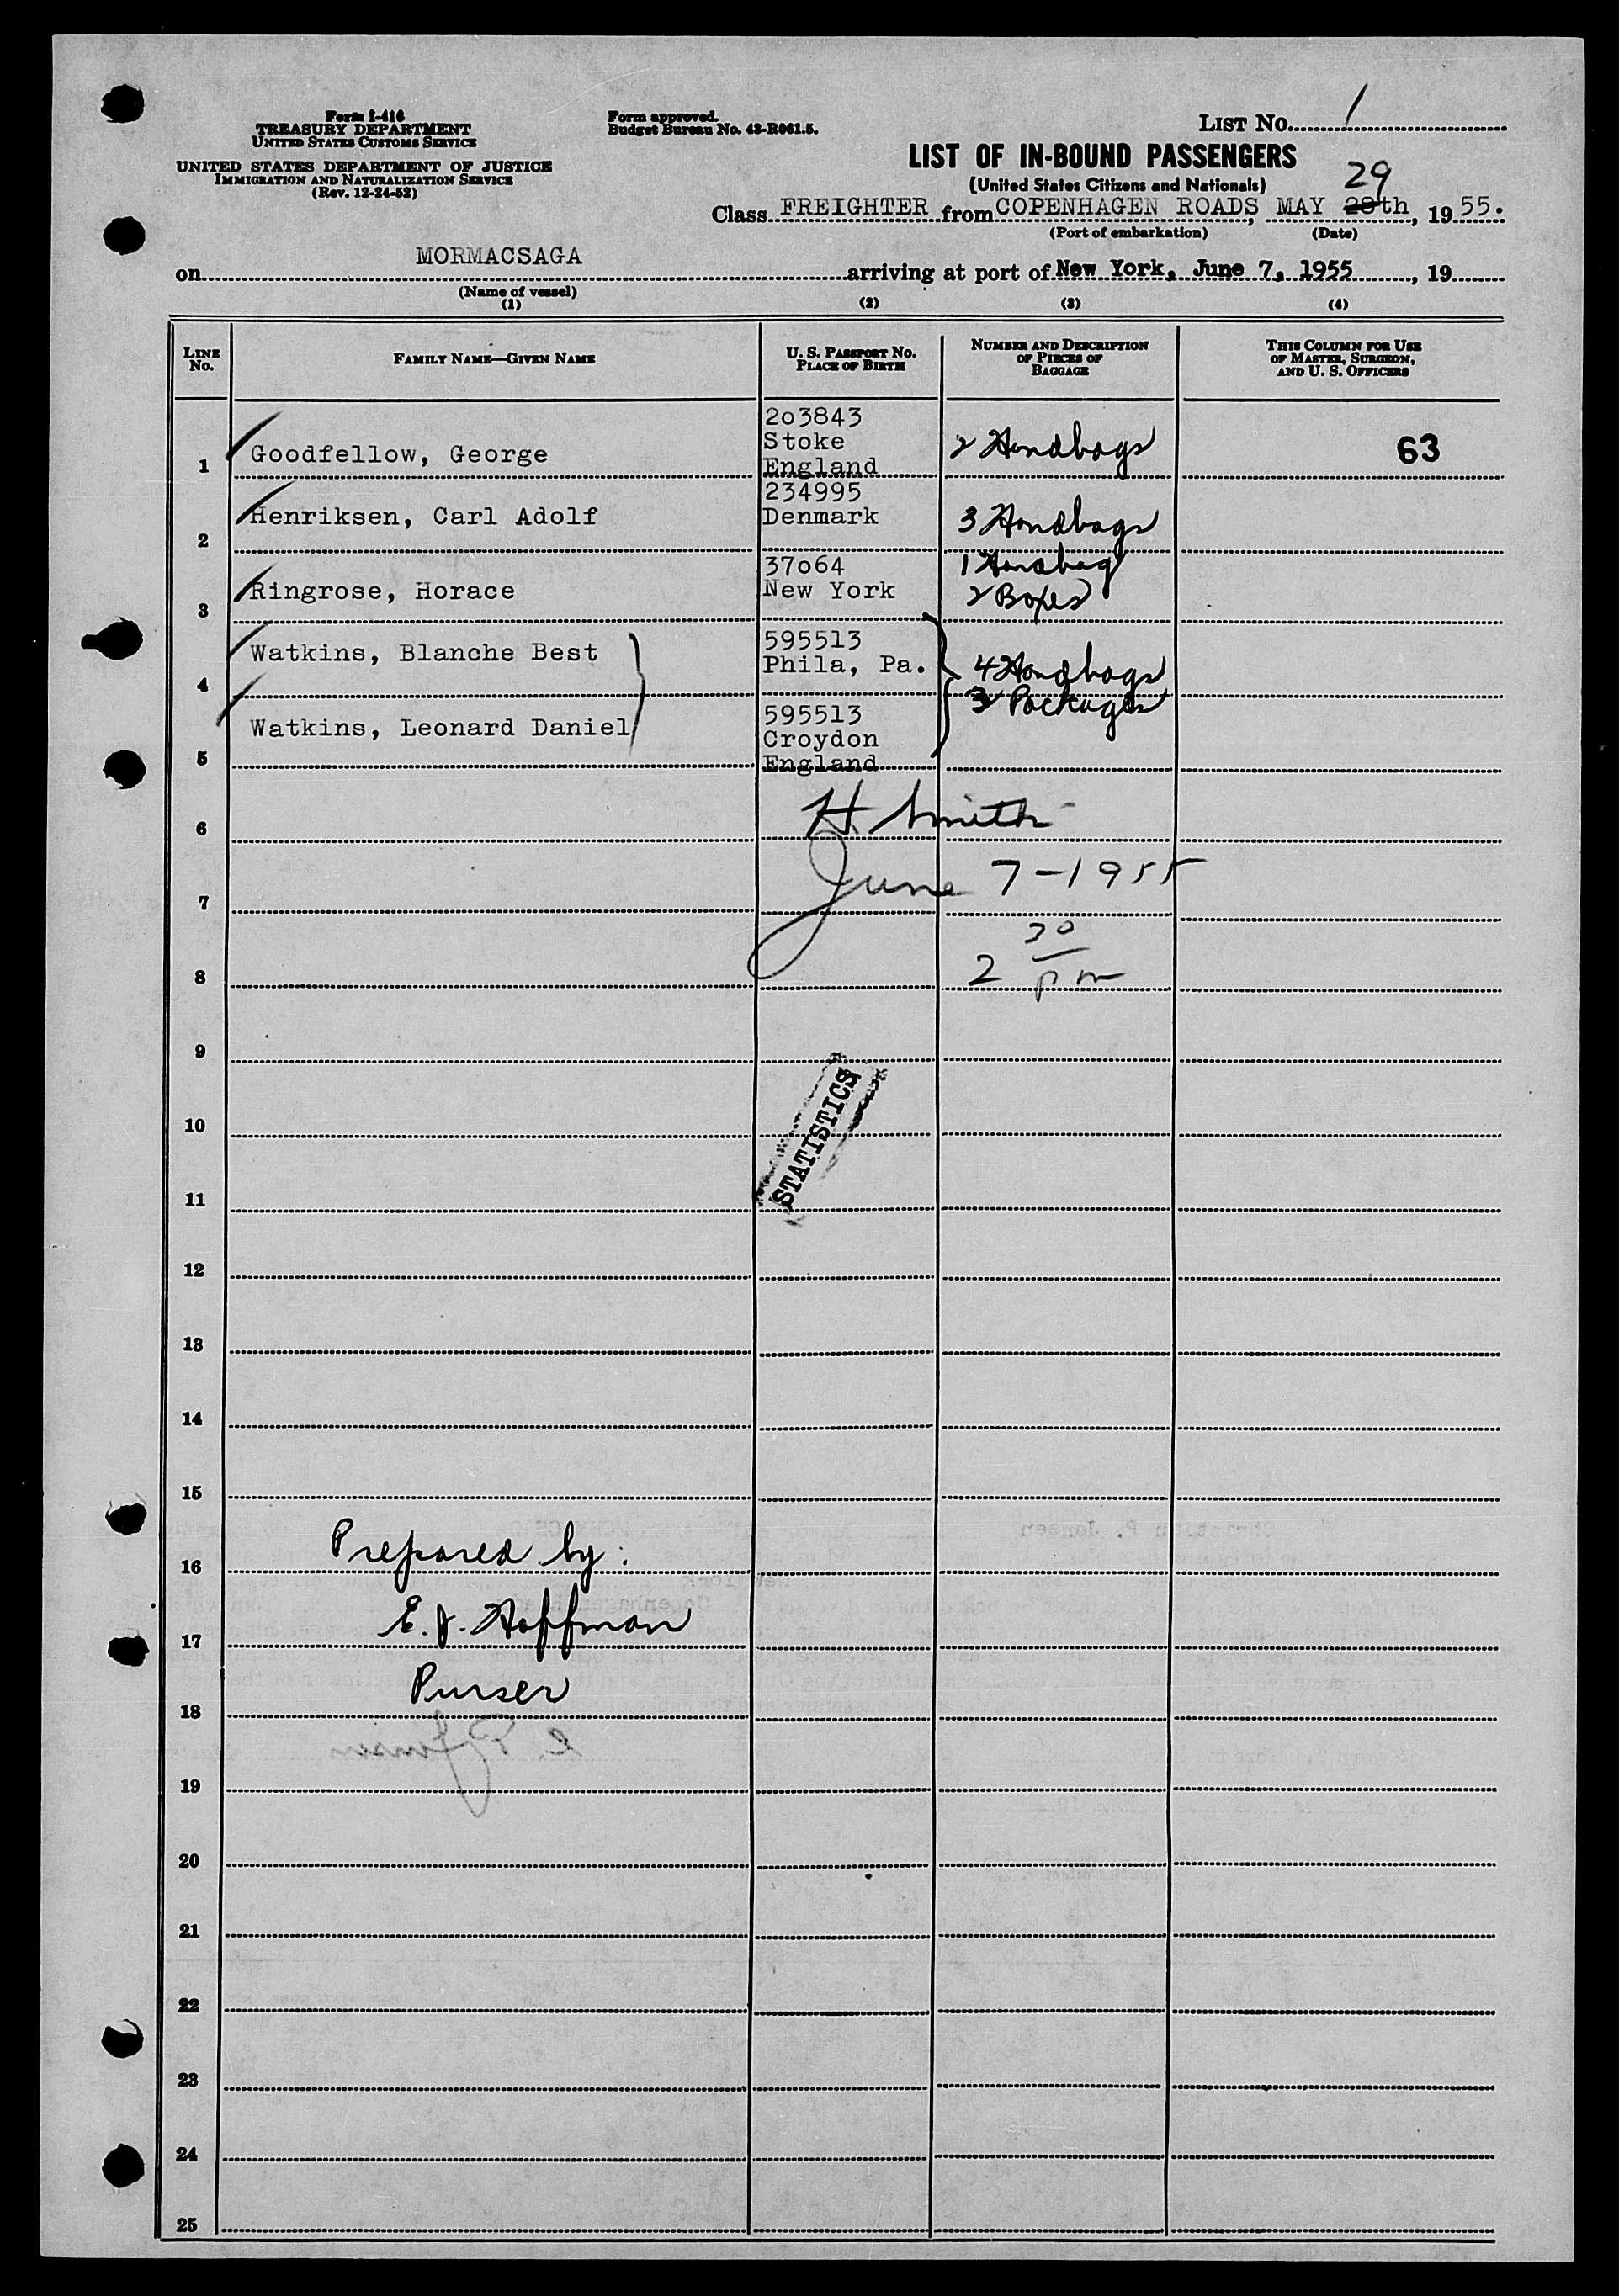 Form I-416
TREASURY DEPARTMENT
UNITED STATES CUSTOMS SERVICE
UNITED STATES DEPARTMENT OF JUSTICE
IMMIGRATION AND NATURALIZATION SERVICE
(Rev. 12-24-52)
Form approved.
Budget Bureau No. 43-R061.5.
LIST No. 1
LIST OF IN-BOUND PASSENGERS
(United States Citizens and Nationals)
29
Class FREIGHTER from COPENHAGEN ROADS, MAY 28th, 1955.
(Port of embarkation) (Date)
on MORMACSAGA arriving at port of New York, June 7, 1955, 19
(Name of vessel)
(1) (2) (3) (4)
LINE No. FAMILY NAME—GIVEN NAME U. S. PASSPORT No. PLACE OF BIRTH NUMBER AND DESCRIPTION OF PIECES OF BAGGAGE THIS COLUMN FOR USE OF MASTER, SURGEON, AND U. S. OFFICERS
203843
Stoke
1 Goodfellow, George England 2 Handbags 63
234995
2 Henriksen, Carl Adolf Denmark 3 Handbags
37064 1 Handbag
3 Ringrose, Horace New York 2 Boxes
595513
4 Watkins, Blanche Best Phila, Pa. 4 Handbags
3 Packages
595513
5 Watkins, Leonard Daniel Croydon
England
6 H Smith
7 June 7-1955
8 2 30 pm
9
10 STATISTICS
11
12
13
14
15
16 Prepared by:
17 E. J. Hoffman
18 Purser
19
20
21
22
23
24
25